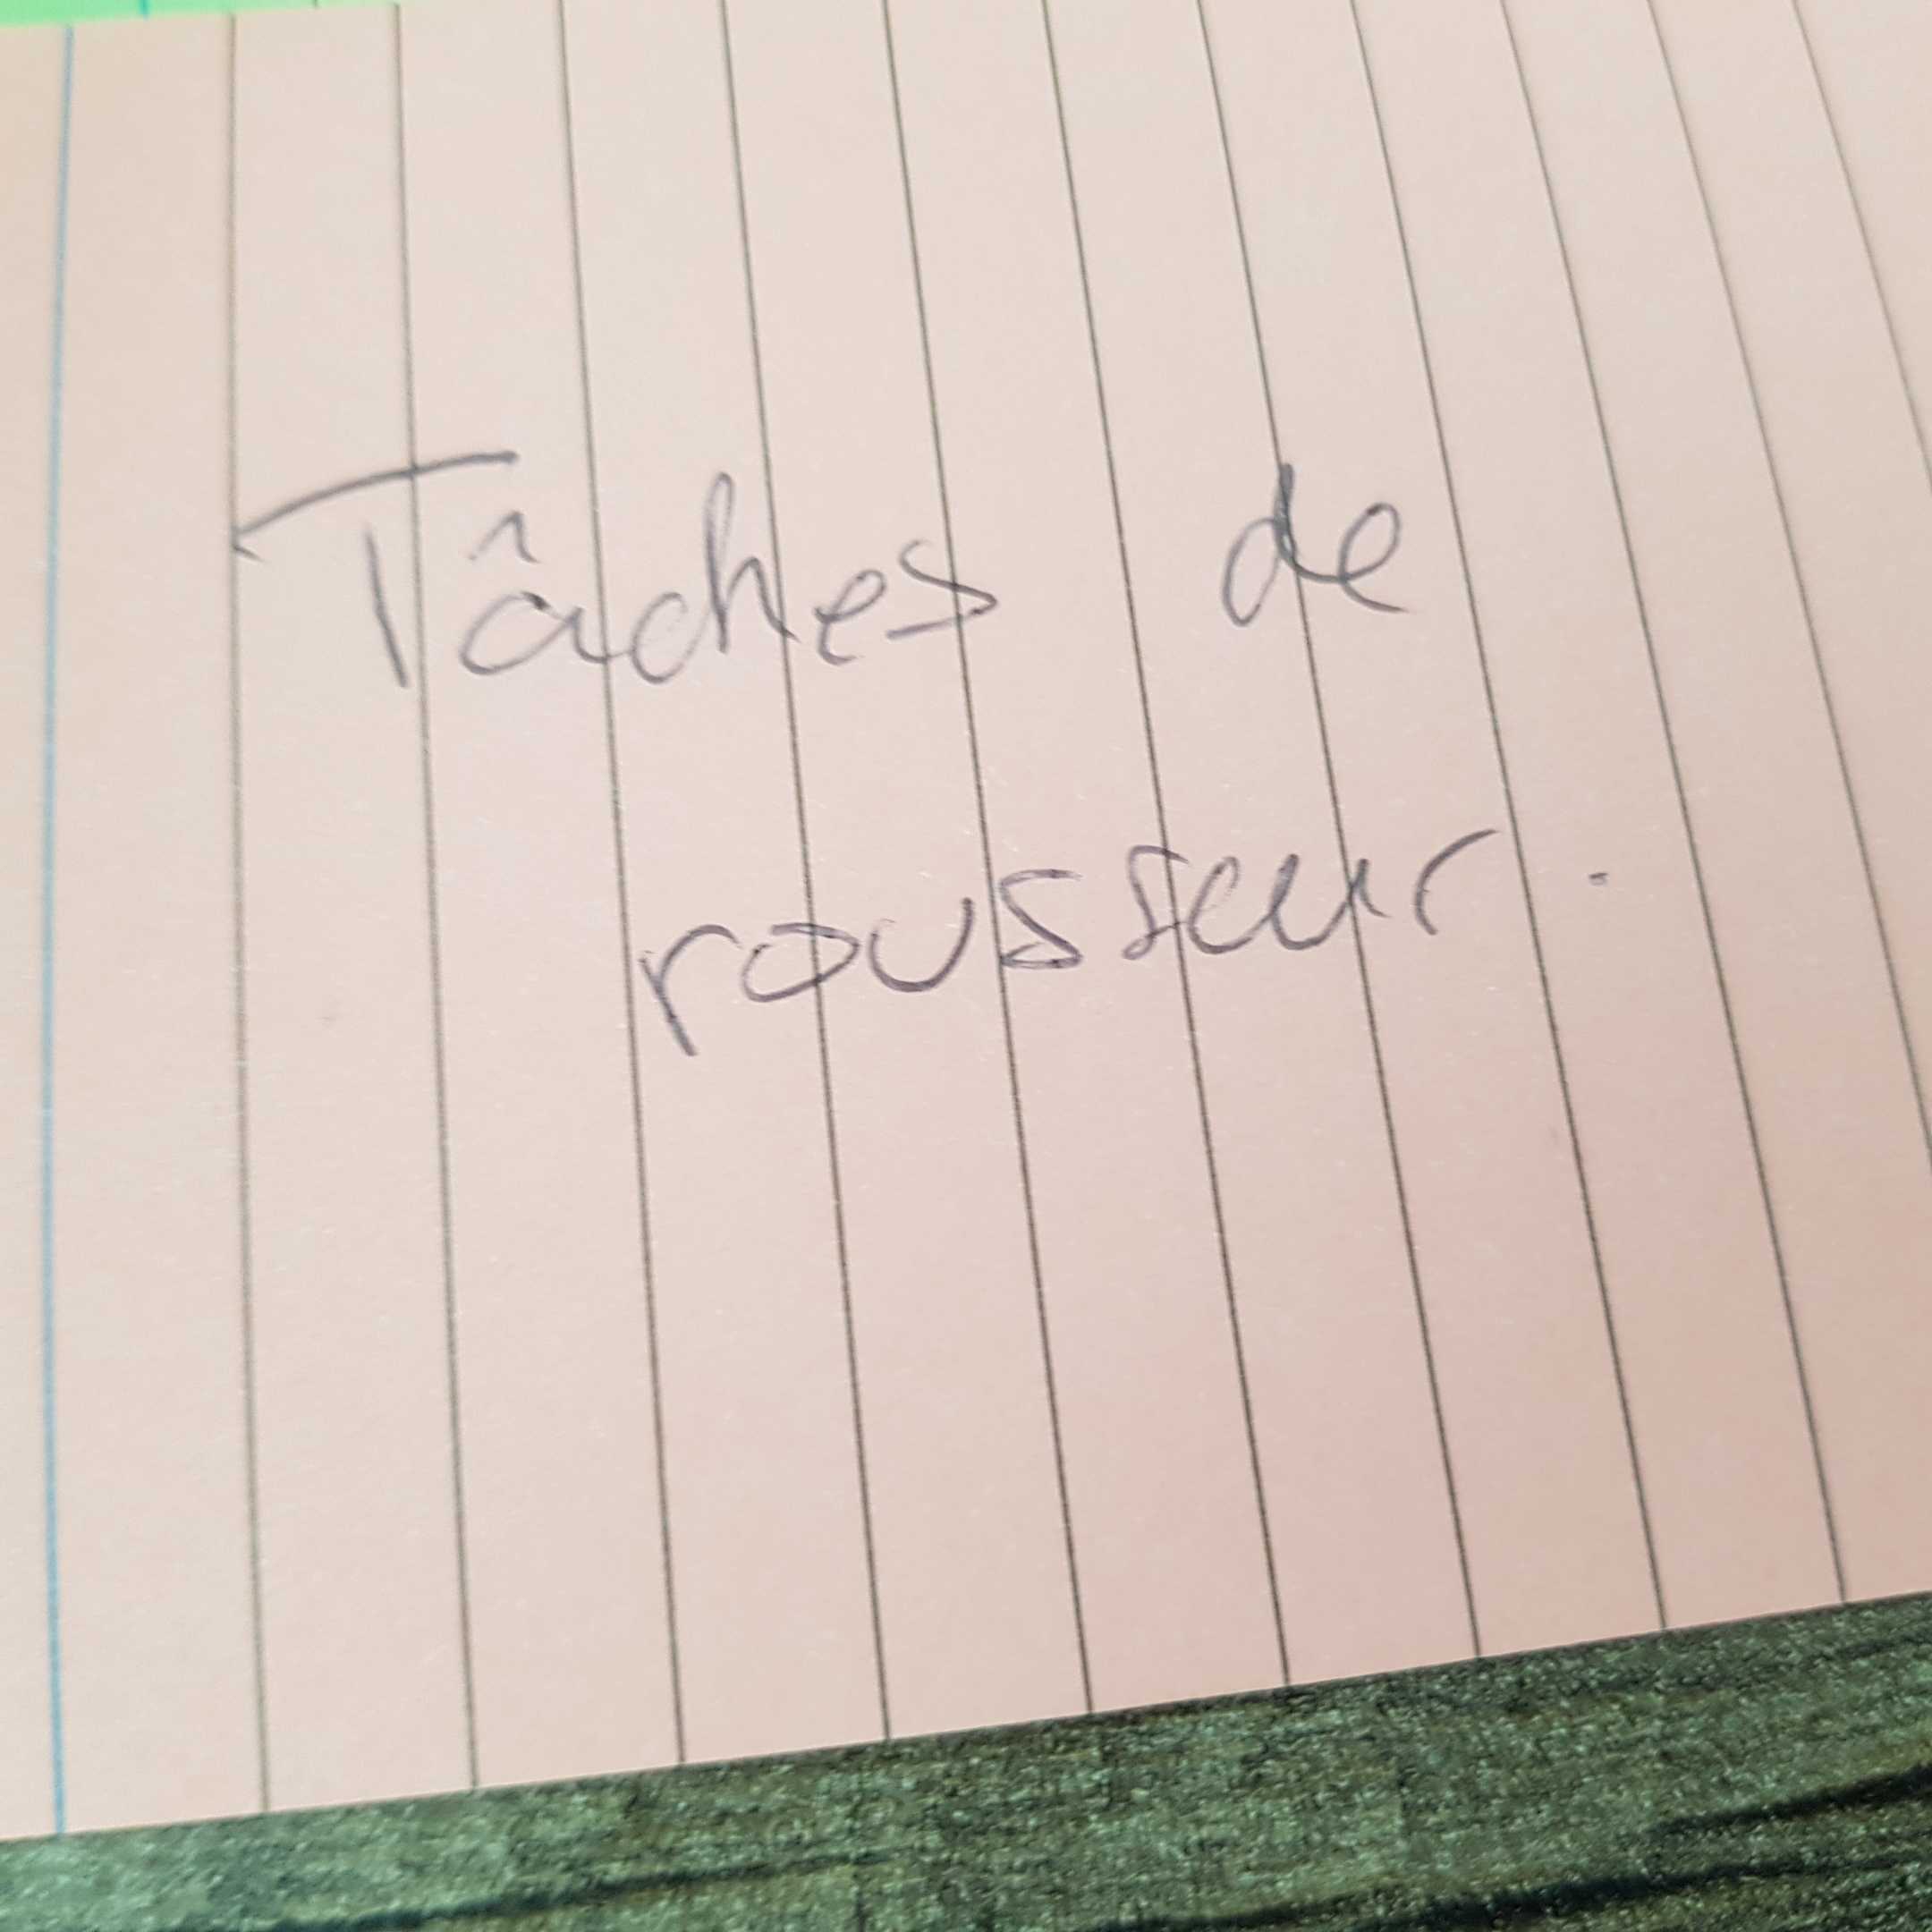 Tâches de
rousseur.